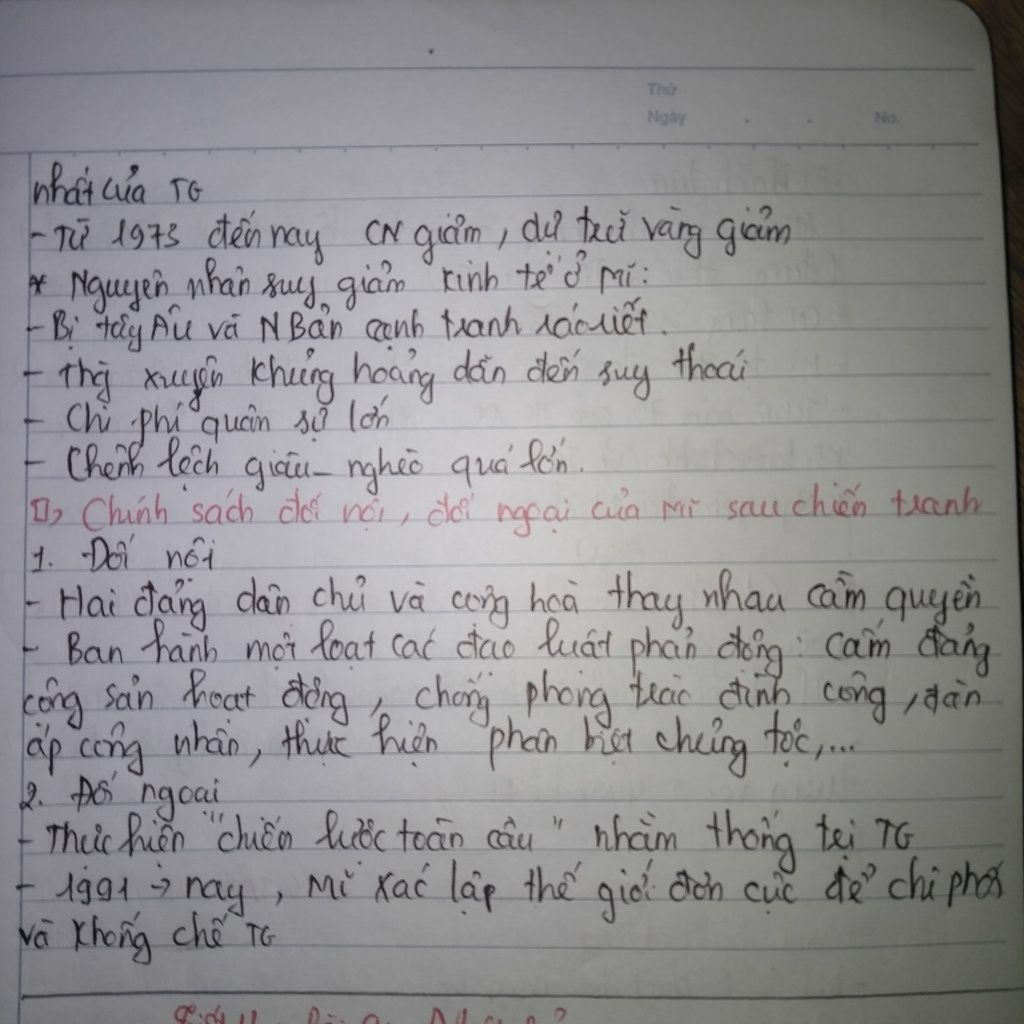 Thứ
Ngày . . No.
nhất của TG
- Từ 1973 đến nay CN giảm, dự trữ vàng giảm
* Nguyên nhân suy giảm kinh tế ở Mĩ:
- Bị tây Âu và N Bản cạnh tranh ráo riết.
- Thg xuyên khủng hoảng dẫn đến suy thoái
- Chi phí quân sự lớn
- Chênh lệch giàu - nghèo quá lớn.
II, Chính sách đối nội, đối ngoại của Mĩ sau chiến tranh
1. Đối nội
- Hai đảng dân chủ và cộng hoà thay nhau cầm quyền
- Ban hành một loạt các đạo luật phản động: cấm đảng
cộng sản hoạt động, chống phong trào đình công, đàn
áp công nhân, thực hiện phân biệt chủng tộc,...
2. Đối ngoại
- Thực hiện "chiến lược toàn cầu" nhằm thống trị TG
- 1991 → nay, Mĩ xác lập thế giới đơn cực để chi phối
và khống chế TG